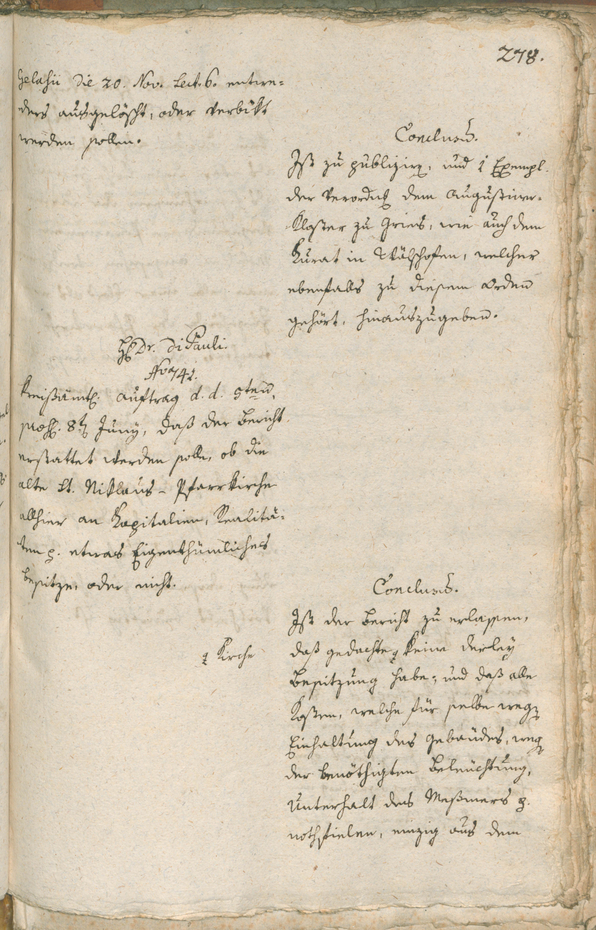 278.
Gelasii Die 20. Nov. Lect. 6. entwe-
ders ausgelöscht, oder verbikt
werden sollen.
Conclus.
Ist zu publiziren, und 1 Exempl.
der Verordng dem Augustiner-
Kloster zu Gries, wie auch dem
Kurat in , welcher
ebenfalls zu diesem Orden
gehört, hinauszugeben.
H. Dr. Di Pauli.
No 742.
Kreißämtl. Auftrag d. d. 5ten,
praes. 8t Juny, daß der Bericht
erstattet werden solle, ob die
alte St. Niklaus-Pfarrkirche
allhier an Kapitalien, Realitä-
ten p. etwas Eigenthümliches
besitze, oder nicht.
Conclus.
Ist der Bericht zu erlassen,
daß gedachte keine derley
Besitzung habe, und daß alle
Kosten, welche für selbe wegen
Einhaltung des Gebäudes, weg
der benöthigten Beleuchtung,
Unterhalt des Meßmers p.
nothfielen, einzig aus dem
Kirche